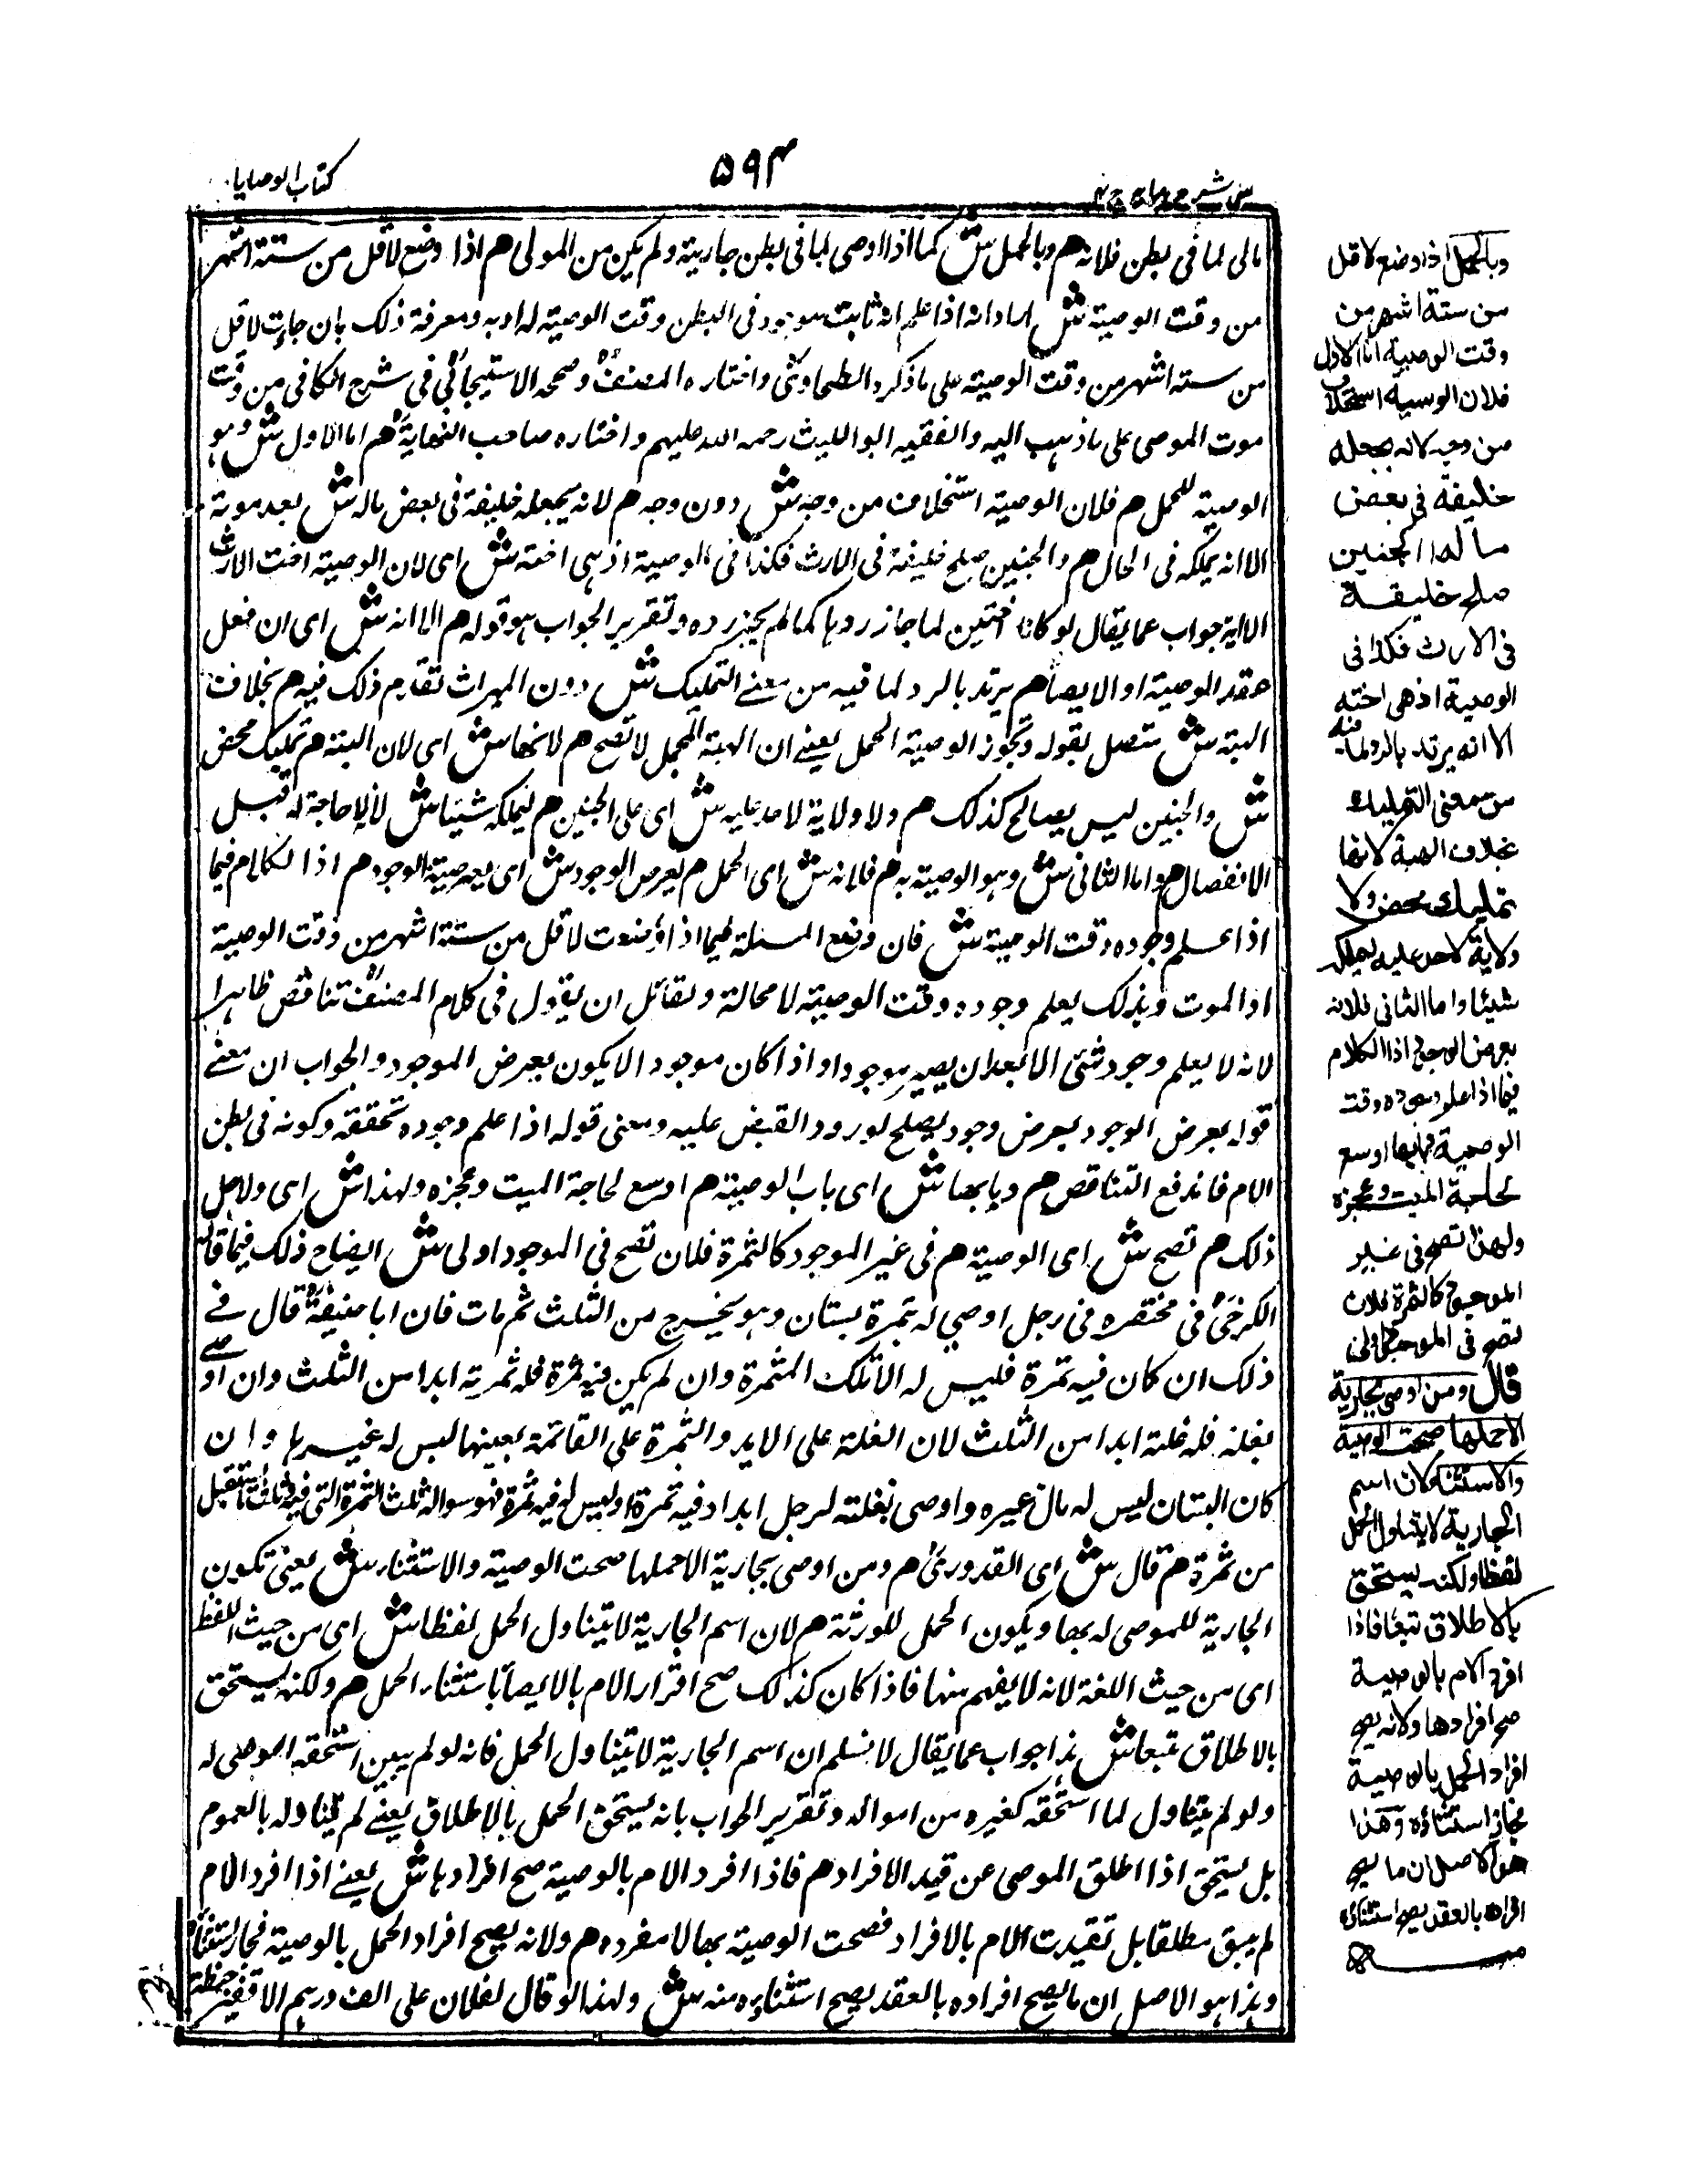 كتاب الوصايا
۵۹۴
مالى لما فى بطن فلانة هم وبالحمل ش كما اذا اوصى لما فى بطن جارية ولم يكن من المولى هم اذا وضع لاقل من ستة اشهر
من وقت الوصية ش اراد انه اذا علم انه ثابت موجود فى البطن وقت الوصية له او به ومعرفة ذلك بان جاءت لاقل
من ستة اشهر من وقت الوصية على ما ذكره الطحاوى واختاره المصنف وصححه الاسبيجابى فى شرح الكافى من وقت
موت الموصى على ما ذهب اليه والفقيه ابو الليث رحمة الله عليهم واختاره صاحب النهاية هم اما الاول ش وهو
الوصية للحمل هم فلان الوصية استخلاف من وجه ش دون وجه هم لانه يجعله خليفة فى بعض ماله ش بعد موته
الا انه يملكه فى الحال هم والجنين صلح خليفة فى الارث فكذا فى الوصية اذ هى اخته ش اى لان الوصية اخت الارث
الا انه جواب عما يقال لو كانا اختين لما جاز ردها كما لم يجز رده وتقرير الجواب هو قوله هم الا انه ش اى ان فعل
عقد الوصية او الايصا هم يرتد بالرد لما فيه من معنى التمليك ش دون الميراث تقدم ذلك فيه هم بخلاف
الهبة ش متصل بقوله وتجوز الوصية الحمل يعنى ان الهبة للحمل لا تصح هم لانها ش اى لان الهبة هم تمليك محض
ش والجنين ليس يصالح كذلك هم ولا ولاية لاحد عليه ش اى على الجنين هم ليملكه شيئا ش لانه لا حاجة له قبل
الانفصال هم واما الثانى ش وهو الوصية به هم فلانه ش اى الحمل هم بعرض الوجود ش اى بعرضية الوجود هم اذ الكلام فيما
اذا علم وجوده وقت الوصية ش فان وضع المسئلة فيما اذا وضعت لاقل من ستة اشهر من وقت الوصية
او الموت وبذلك يعلم وجوده وقت الوصية لا محالة ولقائل ان يقول فى كلام المصنف تناقض ظاهرا
لانه لا يعلم وجود شئ الا بعد ان يصير موجودا واذا كان موجودا لا يكون بعرض الموجود والجواب ان معنى
قوله بعرض الوجود بعرض وجود يصلح لورود القبض عليه ومعنى قوله اذا علم وجوده تحققه وكونه فى بطن
الام فاندفع التناقض هم وبابها ش اى باب الوصية هم اوسع لحاجة الميت وعجزه ولهذا ش اى ولاجل
ذلك هم تصح ش اى الوصية هم فى غير الموجود كالثمرة فلان تصح فى الموجود اولى ش ايضاح ذلك فيما قاله
الكرخى فى مختصره فى رجل اوصى له بثمرة بستان وهو يخرج من الثلث ثم مات فان ابا حنيفة قال فى
ذلك ان كان فيه ثمرة فليس له الا تلك الثمرة وان لم يكن فيه ثمرة فله ثمرته ابدا من الثلث وان اوصى
بغلة فله غلته ابدا من الثلث لان الغلة على الابد والثمرة على القائمة بعينها ليس له غيرها وان
كان البستان ليس له مال غيره واوصى بغلته لرجل ابدا وفيه ثمرة او ليس فيه ثمرة فهو سواء له ثلث الثمرة التى فيه وثلث ما يستقبل
من ثمرة هم قال ش اى القدورى هم ومن اوصى بجارية الا حملها صحت الوصية والاستثناء ش يعنى تكون
الجارية للموصى له بها ويكون الحمل للورثة هم لان اسم الجارية لا يتناول الحمل لفظا ش اى من حيث اللفظ
اى من حيث اللغة لانه لا يفهم منها فاذا كان كذلك صح اقرار الام بالايصا باستثناء الحمل هم ولكنه يستحق
بالاطلاق تبعا ش هذا جواب عما يقال لا نسلم ان اسم الجارية لا يتناول الحمل فانه لو لم يبين استحقه الموصى له
ولو لم يتناول لما استحقه كغيره من امواله وتقرير الجواب بانه يستحق الحمل بالاطلاق يعنى لم يتناوله بالعموم
بل يستحق اذا اطلق الموصى عن قيد الافراد هم فاذا افرد الام بالوصية صح افرادها ش يعنى اذا افرد الام
لم يبق مطلقا بل تقيدت الام بالافراد فصحت الوصية بها لا مفرده هم ولانه يصح افراد الحمل بالوصية فجاز استثناؤه
وهذا هو الاصل ان ما يصح افراده بالعقد يصح استثناؤه منه ش ولهذا لو قال لفلان على الف درهم الا قفيز حنطة
وبالحمل اذا وضع لاقل
من ستة اشهر من
وقت الوصية اما الاول
فلان الوصية استخلاف
من وجه لانه يجعله
خليفة فى بعض
ماله والجنين
صلح خليفة
فى الارث فكذا فى
الوصية اذ هى اخته
الا انه يرتد بالرد لما فيه
من معنى التمليك
بخلاف الهبة لانها
تمليك محض ولا
ولاية لاحد عليه ليملكه
شيئا واما الثانى فلانه
بعرض الوجود اذ الكلام
فيما اذا علم وجوده وقت
الوصية وبابها اوسع
لحاجة الميت وعجزه
ولهذا تصح فى غير
الموجود كالثمرة فلان
تصح فى الموجود اولى
قال ومن اوصى بجارية
الا حملها صحت الوصية
والاستثناء لان اسم
الجارية لا يتناول الحمل
لفظا ولكنه يستحق
بالاطلاق تبعا فاذا
افرد الام بالوصية
صح افرادها ولانه يصح
افراد الحمل بالوصية
فجاز استثناؤه وهذا
هو الاصل ان ما يصح
افراده بالعقد يصح استثناؤه
منه